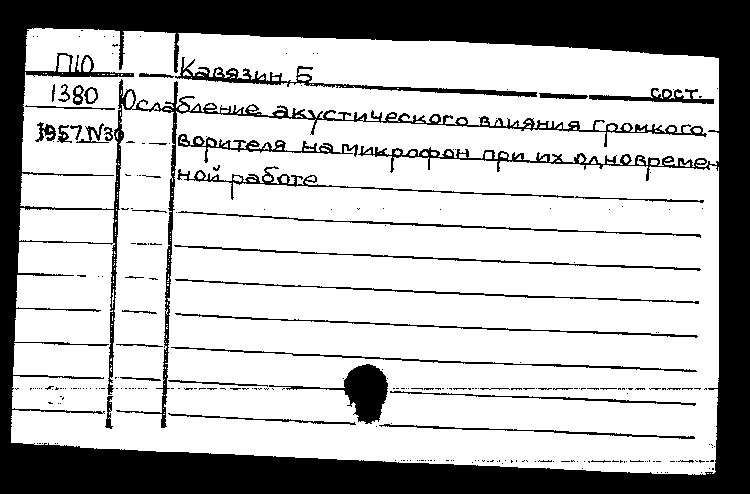 П10 Кавязин, Б
сост.
1380 Ослабление акустического влияния громкого-
1957, N30 ворителя на микрофон при их одновремен
ной работе